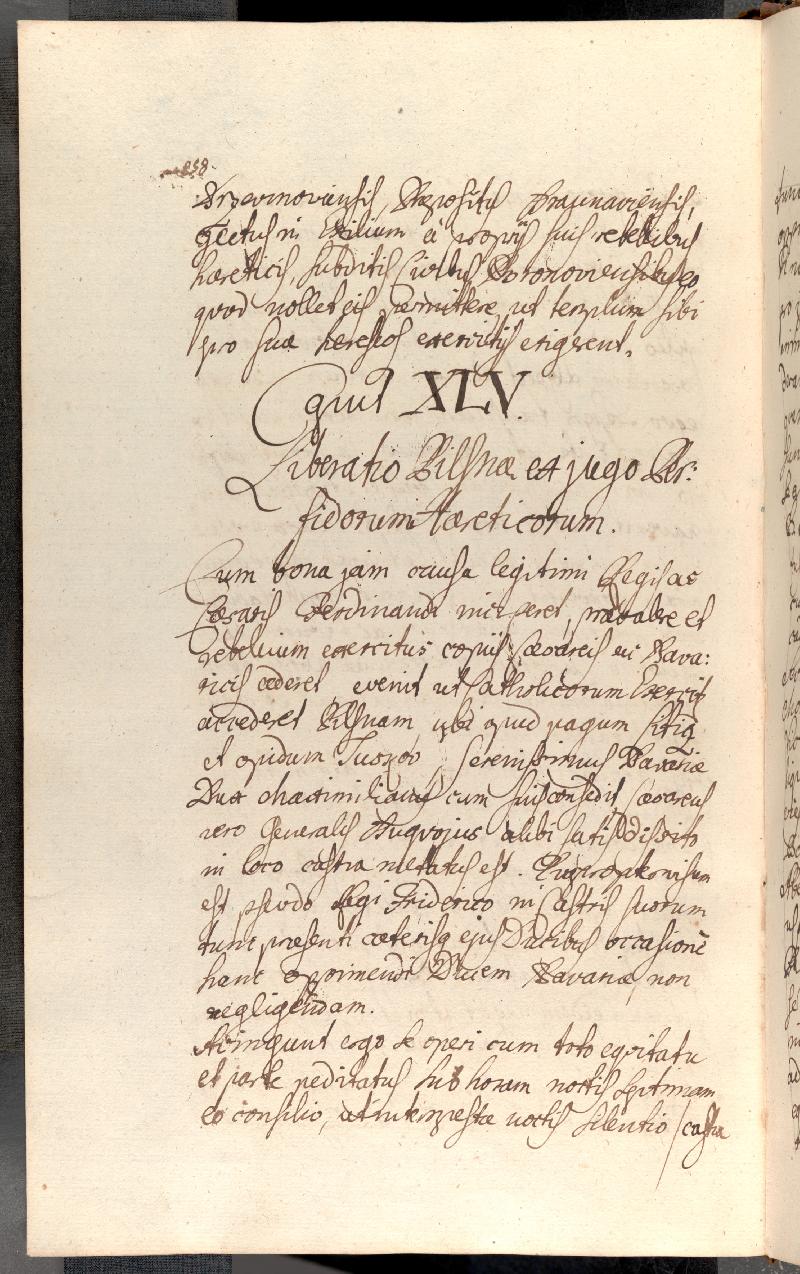 858.
Brzevnoviensis, Præpositus Braunaviensis,
Eiectus in Exilium à proprijs suis rebellibus
hæreticis, subditis Civibus Boronoviensibus, eo
quod nollet eis permittere, ut templum sibi
pro suæ hæresios exercitijs erigerent.
Caput XLV.
Liberatio Pilsnæ ex jugo Per:
fidorum Hæreticorum.
Cum bona jam causa legitimi Regis ac
Cæsaris Ferdinandi inciperet prævalere et
rebellium exercitus copijs Cæsareis ac Bava:
ricis cederet, evenit ut Catholicorum Exercitus
accederet Pilsnam, ubi apud pagum Litiz
et opidum Serenissimus Bavariæ
Dux Maximilianus cum suis consedit, Cæsareus
vero Generalis Buquojus alibi satis dissito
in loco castra metatus est. Quapropter visum
est pseudo Regi Friderico in Castris suorum
tunc præsenti cæterisq ejus Ducibus occasionē
hanc opprimendi Ducem Bavariæ non
negligendam.
Accingunt ergo se operi cum toto equitatu
et parte peditatus sub horam noctis septimam
eo consilio, ut intempestæ noctis silentio / castra